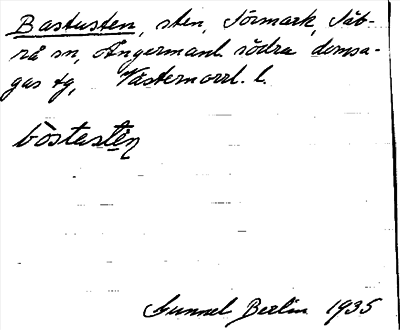 Bastusten, sten, Törmark, Säb-
rå sn, Ångermanl. södra domsa-
gas tg, Västernorrl. l.
bòstastén
Gunnel Berlin 1935